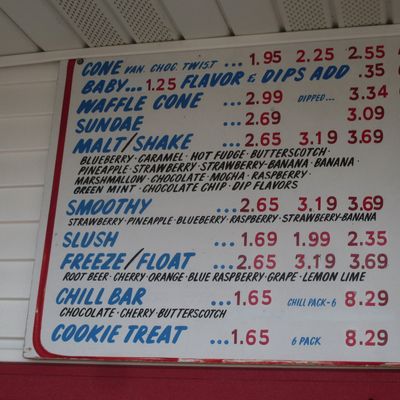 CONE VAN. CHOC. TWIST ... 1.95 2.25 2.55
BABY... 1.25 FLAVOR & DIPS ADD .35
WAFFLE CONE ... 2.99 DIPPED... 3.34
SUNDAE ... 2.69 3.09
MALT/SHAKE ... 2.65 3.19 3.69
BLUEBERRY · CARAMEL · HOT FUDGE · BUTTERSCOTCH ·
PINEAPPLE · STRAWBERRY · STRAWBERRY-BANANA · BANANA ·
MARSHMALLOW · CHOCOLATE · MOCHA · RASPBERRY ·
GREEN MINT · CHOCOLATE CHIP · DIP FLAVORS
SMOOTHY ... 2.65 3.19 3.69
STRAWBERRY · PINEAPPLE · BLUEBERRY · RASPBERRY · STRAWBERRY-BANANA
SLUSH ... 1.69 1.99 2.35
FREEZE/FLOAT ... 2.65 3.19 3.69
ROOT BEER · CHERRY · ORANGE · BLUE RASPBERRY · GRAPE · LEMON LIME
CHILL BAR ... 1.65 CHILL PACK-6 8.29
CHOCOLATE · CHERRY · BUTTERSCOTCH
COOKIE TREAT ... 1.65 6 PACK 8.29